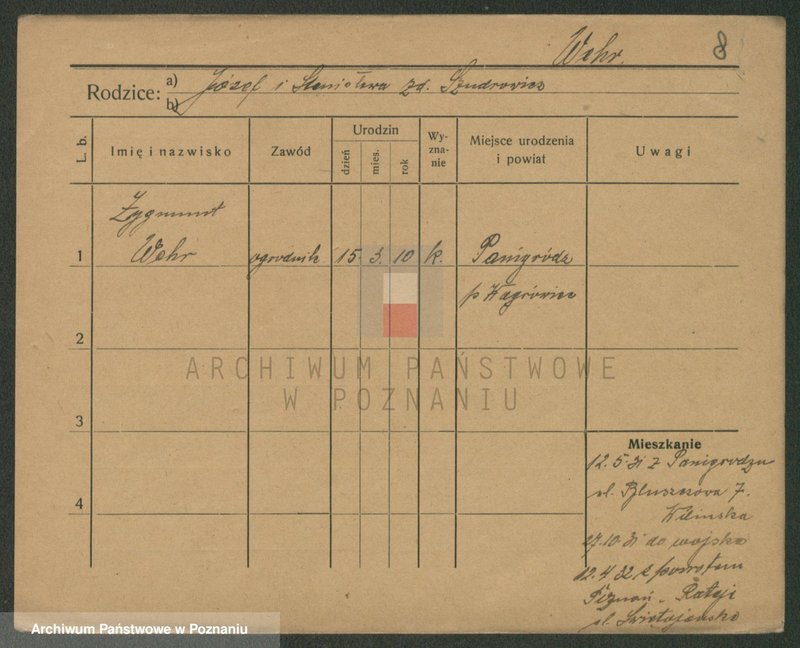 Wehr. 8
Rodzice: a) Józef i Stanisława zd. Szudrowicz
b)
L. b.
Imię i nazwisko
Zawód
Urodzin
dzień
mies.
rok
Wy-
zna-
nie
Miejsce urodzenia
i powiat
Uwagi
Zygmunt
1 Wehr ogrodnik 15. 3. 10 k. Panigródz
p Wągrówiec
2
3
4
Mieszkanie
12.5.31 z Panigrodzu
ul. Bluszczowa 7.
Kilinska
27.10.31 do wojska
12.4.32 z powrotem
Poznań - Rataje
ul. Świętojańska
ARCHIWUM PAŃSTWOWE
W POZNANIU
Archiwum Państwowe w Poznaniu